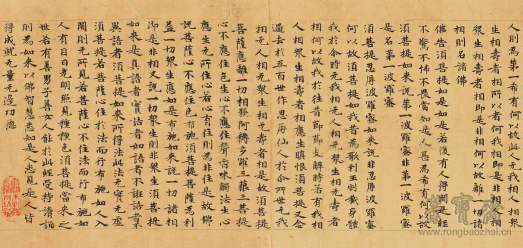 則為第一希有何以故此人无我相人相眾
生相壽者相所以者何我相即是非相人相
眾生相壽者相即是非相何以故離一切諸
相則名諸佛
佛告須菩提如是如是若復有人得聞是經
不驚不怖不畏當知是人甚為希有何以故
須菩提如來說第一波羅蜜非第一波羅蜜
是名第一波羅蜜
須菩提忍辱波羅蜜如來說非忍辱波羅蜜
何以故須菩提如我昔為歌利王割截身體
我於尒時无我相无人相无眾生相无壽者
相何以故我於往昔節節支解時若有我相
人相眾生相壽者相應生瞋恨須菩提又念
過去於五百世作忍辱仙人於尒所世无我
相无人相无眾生相无壽者相是故須菩提
菩薩應離一切相發阿耨多羅三藐三菩提
心不應住色生心不應住聲香味觸法生心
應生无所住心若心有住則為非住是故佛
說菩薩心不應住色布施須菩提菩薩為利
益一切眾生應如是布施如來說一切諸相
即是非相又說一切眾生則非眾生須菩提
如來是真語者實語者如語者不誑語者不
異語者須菩提如來所得法此法无實无虛
須菩提若菩薩心住於法而行布施如人入
闇則无所見若菩薩心不住法而行布施如
人有目日光明照見種種色須菩提當來之
世若有善男子善女人能於此經受持讀誦
則為如來以佛智慧悉知是人悉見是人皆
得成就无量无邊功德
www.rongbaozhai.cn